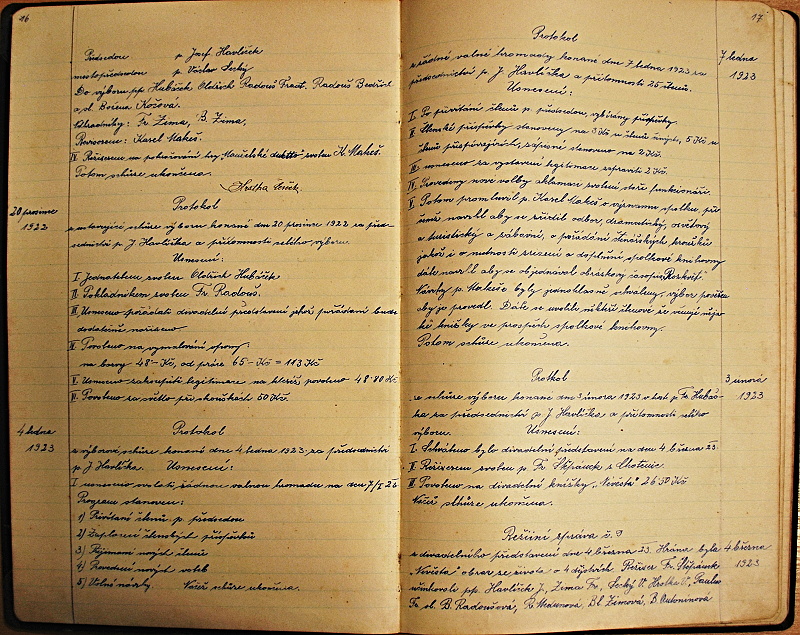 16
Předsedou p Josef Havlíček
místopředsedou p Václav Lecký
Do výboru pp Hubáček Oldřich Radouš Frant. Radouš Bedřich
a sl. Božena Košová.
Náhradníky: Fr. Zima, B. Zima,
Revisorem: Karel Makeš.
IV. Režiserem na
zvolen K. Makeš.
Potom schůze ukončena.
20 prosince
1922
Protokol
z ustavující schůze výboru konané dne 20 prosince 1922 za před-
sednictví p J. Havlíčka a přítomnosti celého výboru
Usnesení:
I. Jednatelem zvolen Oldřich Hubáček
II. Pokladníkem zvolen Fr. Radouš.
III. Usneseno pořádati divadelní představení jehož pořádání bude
dodatečně
IV. Povoleno na vymalování opony:
na barvy 48·– Kč, od práce 65 – Kč = 113 Kč
V. Usneseno zakoupiti legitimace na
povoleno 48·80 Kč
VI. Povoleno za světlo při zkouškách 50 Kč.
4 ledna
1923
Protokol
z výborové schůze konané dne 4 ledna 1923 za předsednictví
p J. Havlíčka. Usnesení:
I usneseno svolati řádnou valnou hromadu na den 7/I 23.
Program stanoven:
1) Přivítání členů p. předsedou
2) Zaplacení členských příspěvků
3) Přijímání nových členů
4) Provedení nových voleb
5) Volné návrhy. Načež schůze ukončena.
17
Protokol
z řádné valné hromady konané dne 7 ledna 1923 za
předsednictví p. J. Havlíčka a přítomnosti 25 členů.
Usnesení:
7 ledna
1923
I. Po přivítání členů p předsedou, vybírány příspěvky.
II. Členské příspěvky stanoveny na 3 Kč u členů činných, 5 Kč u
členů přispívajících, zápisné stanoveno na 2 Kč.
III. usneseno za vystavení legitimace zapraviti 2 Kč.
IV. Provedeny nové volby aklamací zvoleni staří funkcionáři.
V. Potom promluvil p. Karel Makeš o významu spolku, při
čemž navrhl aby se zřídil odbor dramatický, osvětový
a turistický a zábavní, o pořádání čtenářských kroužků
jakož i o nutnosti zřízení a doplnění spolkové knihovny
dále navrhl aby se objednával obrázkový časopis „Rozkvět“
Návrhy p. Makeše byly jednohlasně schváleny, výbor pověřen
aby je provedl. Dále se uvolili někteří členové že věnují něja-
ké knížky ve prospěch spolkové knihovny.
Potom schůze ukončena.
Protkol
3 února
1923
ze schůze výboru konané dne 3 února 1923 v byt p Fr. Hubáč-
ka za předsednictví p J. Havlíčka a přítomnosti celého
výboru. Usnesení:
I. Schváleno bylo divadelní představení na den 4 března 23.
II Režiserem zvolen p. Fr. Štěpánek z Chotenic.
III Povoleno na divadelní knížky „Nevěsta“ 26·50 Kč
Načež schůze ukončena.
Režijní zpráva č. 9
z divadelního představení dne 4 března 23. Hrána byla
„Nevěsta“ obraz ze života o 4 dějstvích Režiser Fr. Štěpánek
účinkovali pp. Havlíček J., Zima Fr., Lecký V.
Fr. sl. B. Radoušová,
Bl Zimová, B. Antonínová
4 března
1923